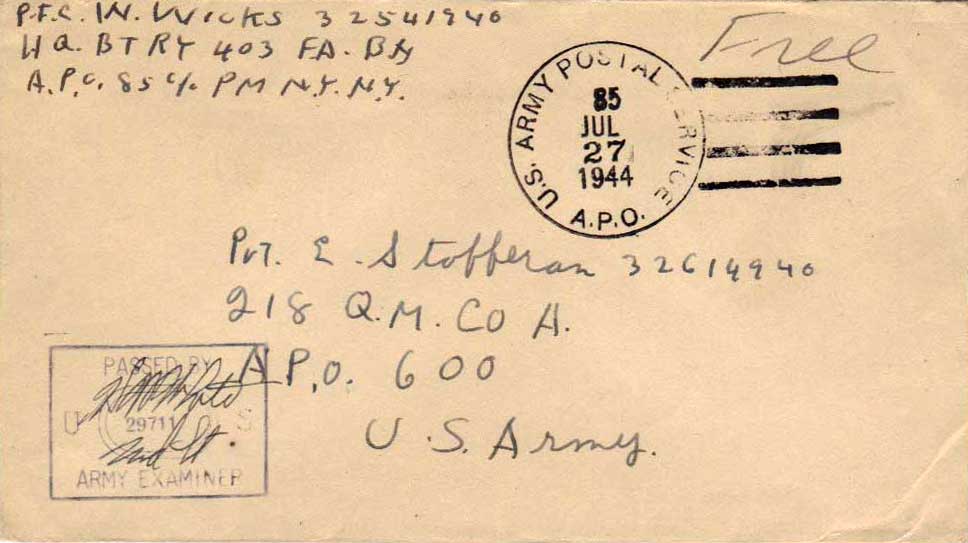 P.F.C. W. WICKS 32541940
HQ. BTRY 403 FA. BN
A.P.O. 85 c/o PM N.Y. N.Y.
Free
U.S. ARMY POSTAL SERVICE
85
JUL
27
1944
A.P.O.
Pvt. E. Stofferan 32614940
218 Q.M. CO A.
A.P.O. 600
U.S. Army.
PASSED BY
U S
29711
2nd Lt
ARMY EXAMINER